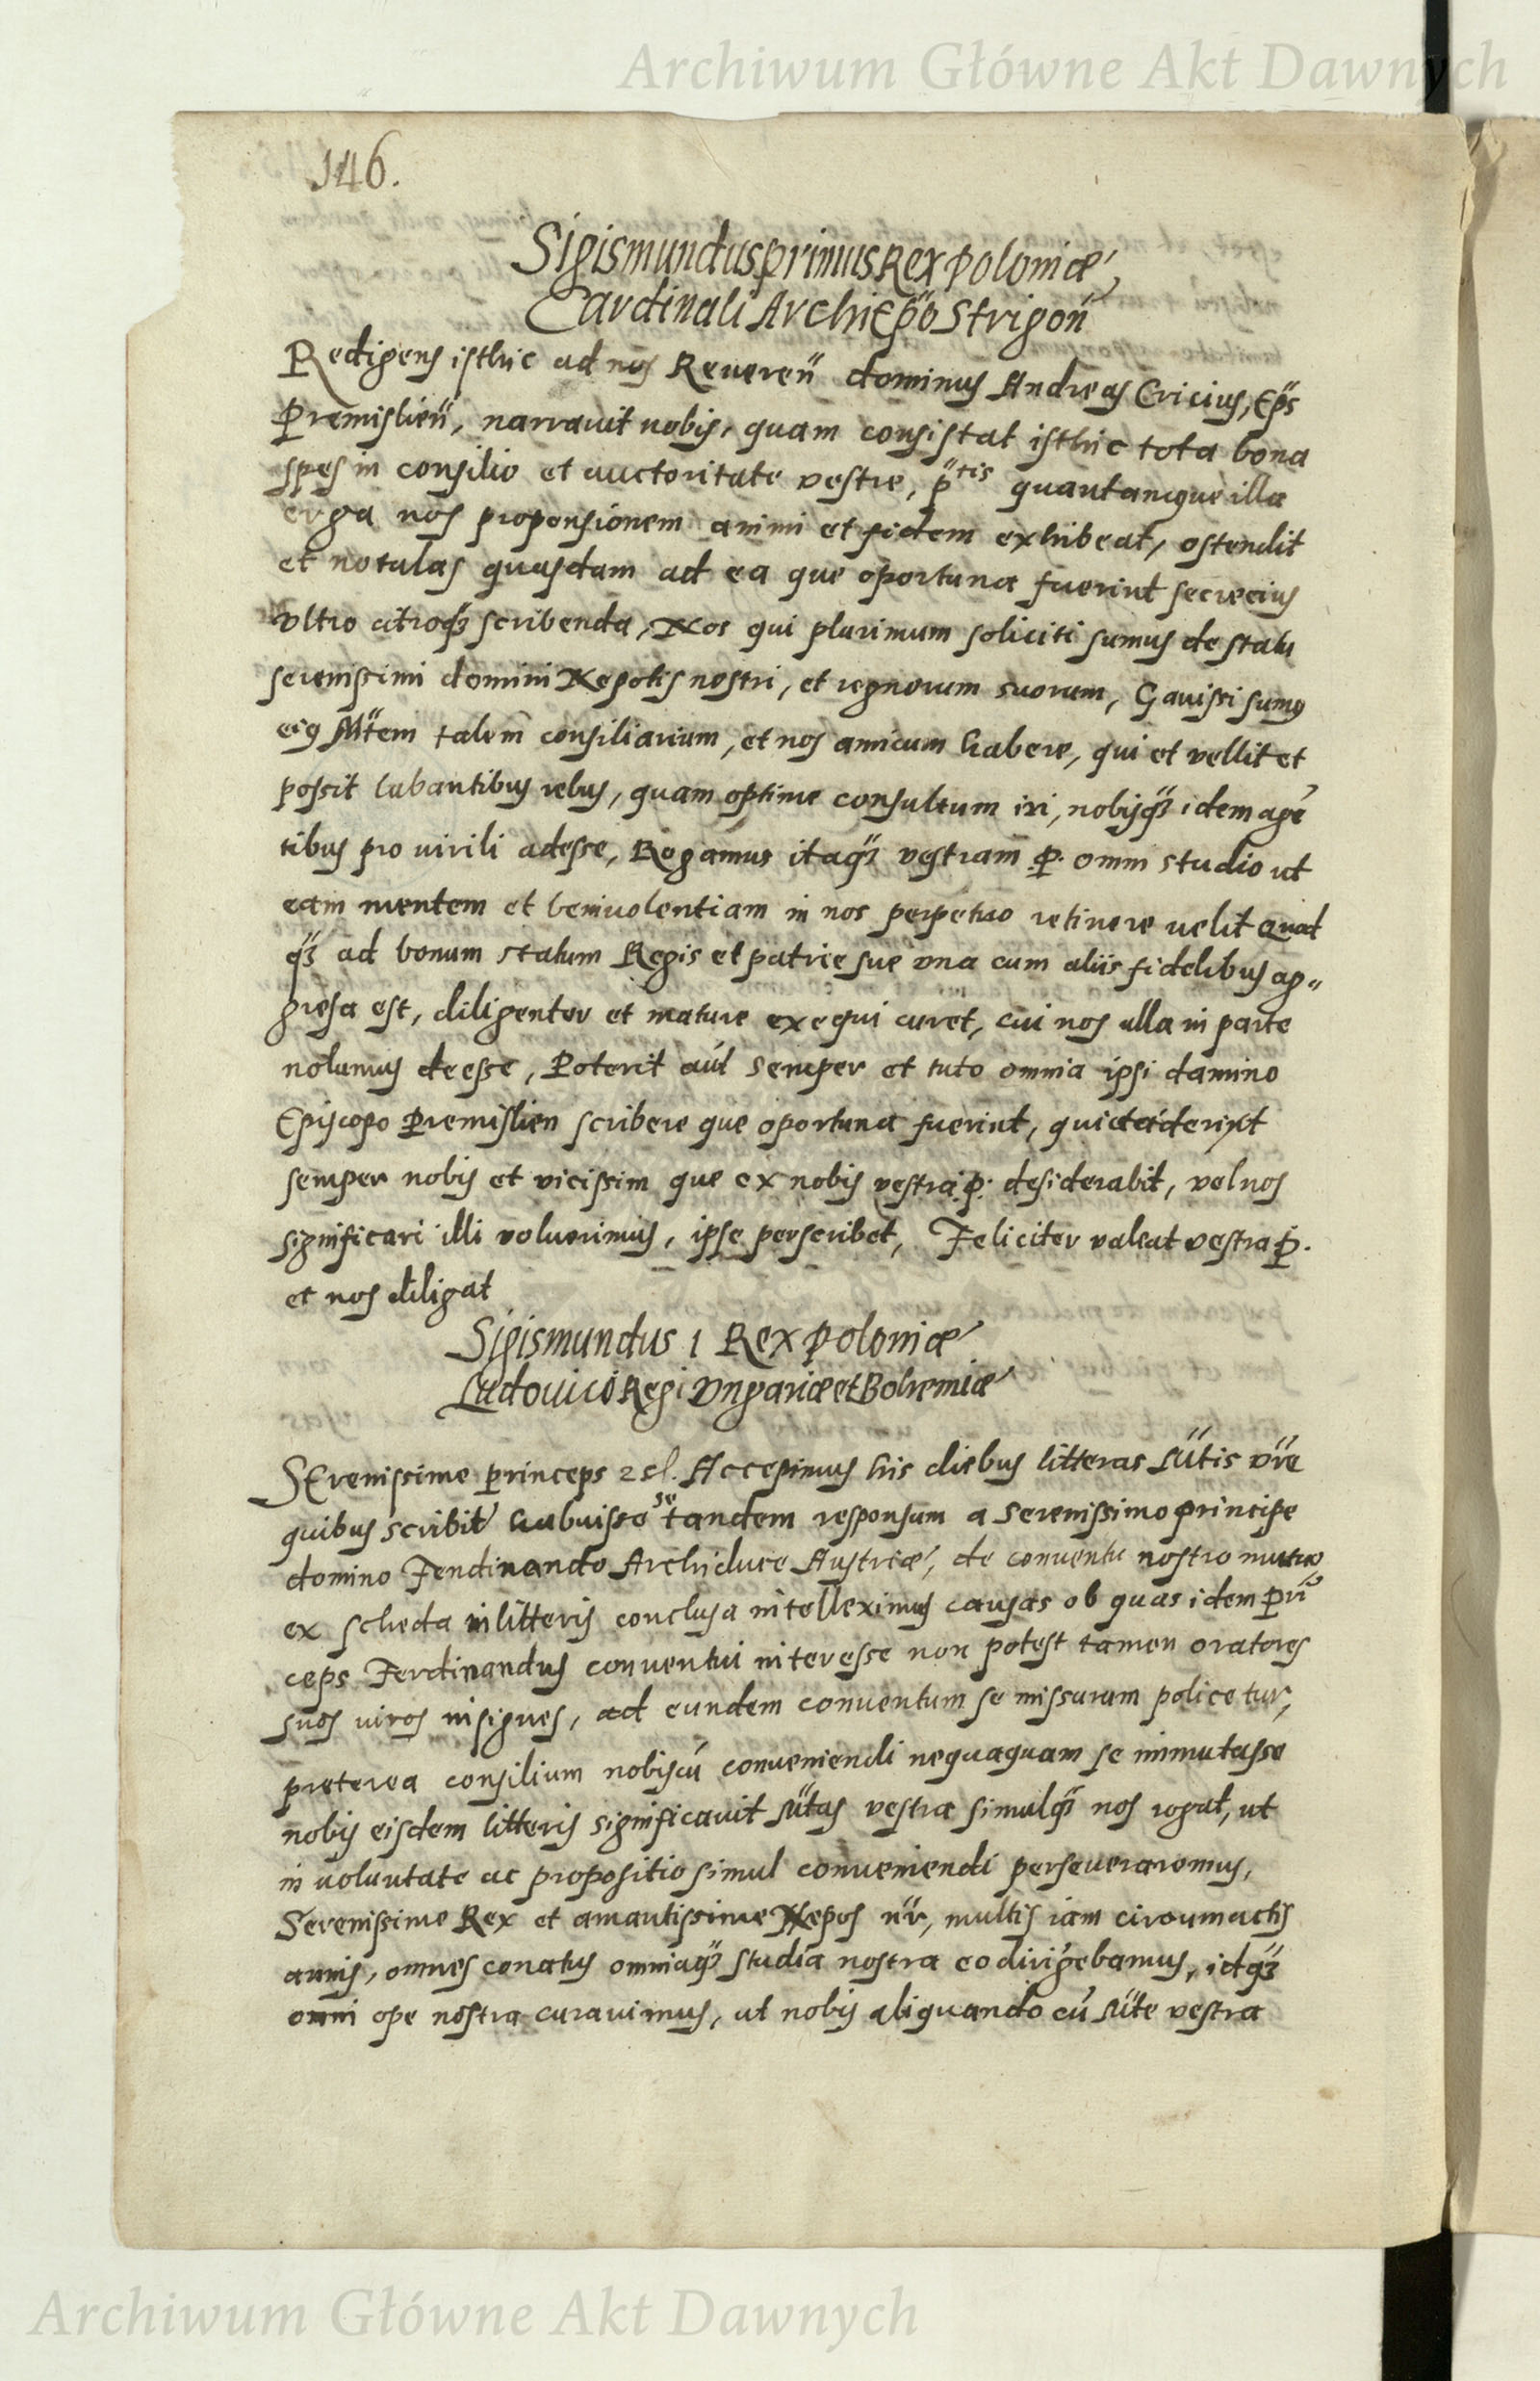 Archiwum Główne Akt Dawnych
146.
Sigismundus primus Rex poloniæ
Cardinali ArchiEp̃o Strigoñ
Redigens isthic ad nos Reuereñ dominus Andreas Cricius, Ep̃s
Premislieñ, narrauit nobis, quam consistat isthic tota bona
spes in consilio et auctoritate vestre, p̃tis quantamque illa
erga nos propensionem animi et fidem exhibeat, ostendit
et notulas quasdam ad ea que oportuna fuerint secrecius
vltro citroq̃ scribenda, Nos qui plurimum soliciti sumus de statu
serenissimi domini Nepotis nostri, et regnorum suorum, Gauissi sumus
eiꝰ Mt̃em talem consiliarium, et nos amicum habere, qui et vellit et
possit labantibus rebus, quam optime consultum iri, nobisq̃ idem agẽ
tibus pro uirili adesse, Rogamus itaq̃ vestram .p. omni studio ut
eam mentem et beniuolentiam in nos perpetuo retinere uelit quod
q̃ ad bonum statum Regis et patrie sue vna cum aliis fidelibus ag„
gresa est, diligenter et mature exequi curet, cui nos ulla in parte
nolumus deesse, Poterit aũt semper et tuto omnia ipsi damino
Episcopo Premislien scribere que oportuna fuerint, qui
semper nobis et vicissim que ex nobis vestra .p. desiderabit, vel nos
significari illi voluerimus, ipse perscribet, Feliciter valeat vestra p.
et nos diligat
Sigismundus 1 Rex poloniæ
Ludouico Regi Vngariæ et Bohemiæ
SErenissime princeps 2cl. Accepimus his diebus litteras Sũtis vr̃e
quibus scribit habuisse se tandem responsum a Serenissimo principe
domino Fendinando Archiduce Austriæ, de conuentu nostro mutuo
ex scheda in litteris conclusa intelleximus causas ob quas idem prĩ
ceps Ferdinandus conuentui interesse non potest tamen oratores
suos uiros insignes, ad eundem conuentum se missurum policetur,
preterea consilium nobiscũ conueniendi nequaquam se inmutasse
nobis eisdem litteris significauit Sũtas vestra simulq̃ nos rogat, ut
in uoluntate ac propositio simul conueniendi perseueraremus,
Serenissime Rex et amantissime Nepos nr̃, multis iam circumactis
annis, omnes conatus omniaq̃ studia nostra eo dirigebamus, idq̃
omni ope nostra curauimus, ut nobis aliquando cũ Sũte vestra
Archiwum Główne Akt Dawnych